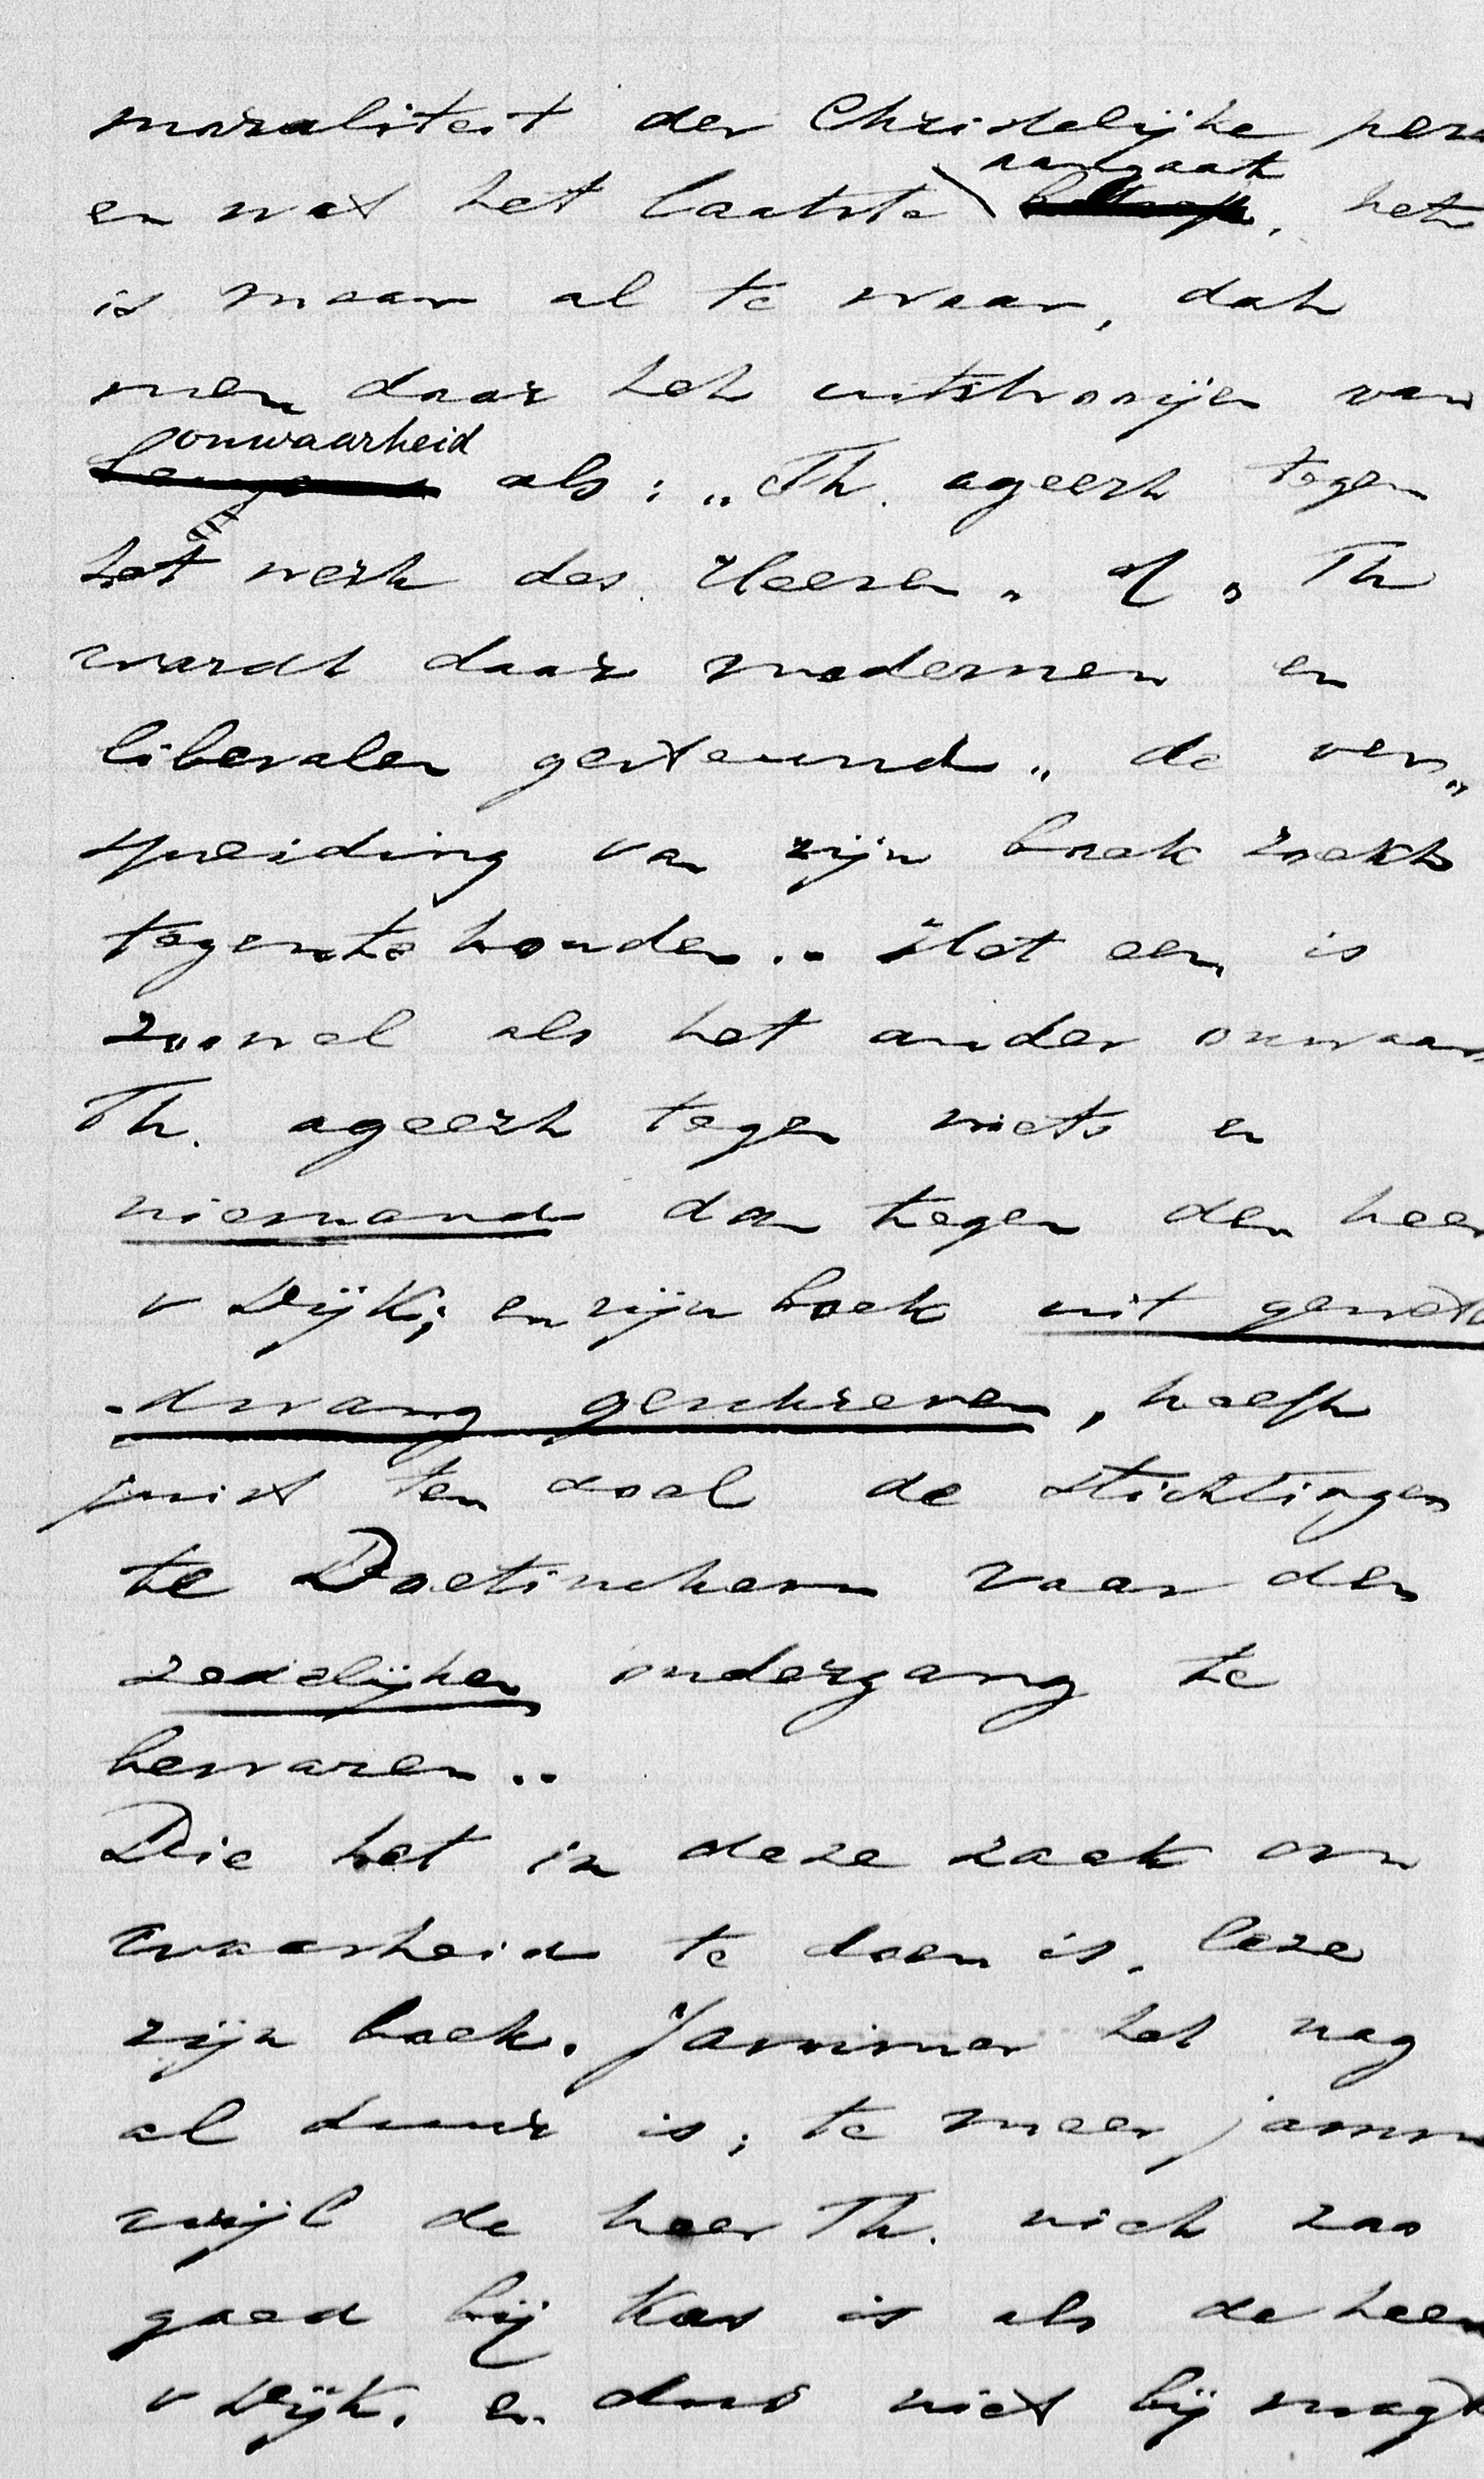 moraliteit der Christelijke pers
aangaat
en wat het laatste betreft, het
is maar al te waar, dat
men daar het uitstrooijen van
onwaarheid
leugens als: „Th. ageert tegen
het werk des Heeren„ of „Th
wordt door modernen en
liberalen gesteund„ de ver„
spreiding van zijn boek zoekt
tegen te houden.. Het een is
zoowel als het ander onwaar
Th. ageert tegen niets en
niemand dan tegen den heer
v Dijk; en zijn boek uit gewetens
-dwang geschreven, heeft
juist ten doel de stichtingen
te Doetinchem voor den
zedelijken ondergang te
bewaren..
Die het in deze zaak om
waarheid te doen is, leze
zijn boek. Jammer het nog
al duur is; te meer jammer
wijl de heer Th. niet zoo
goed bij kas is als de heer
v Dijk. en dus niet bij magte